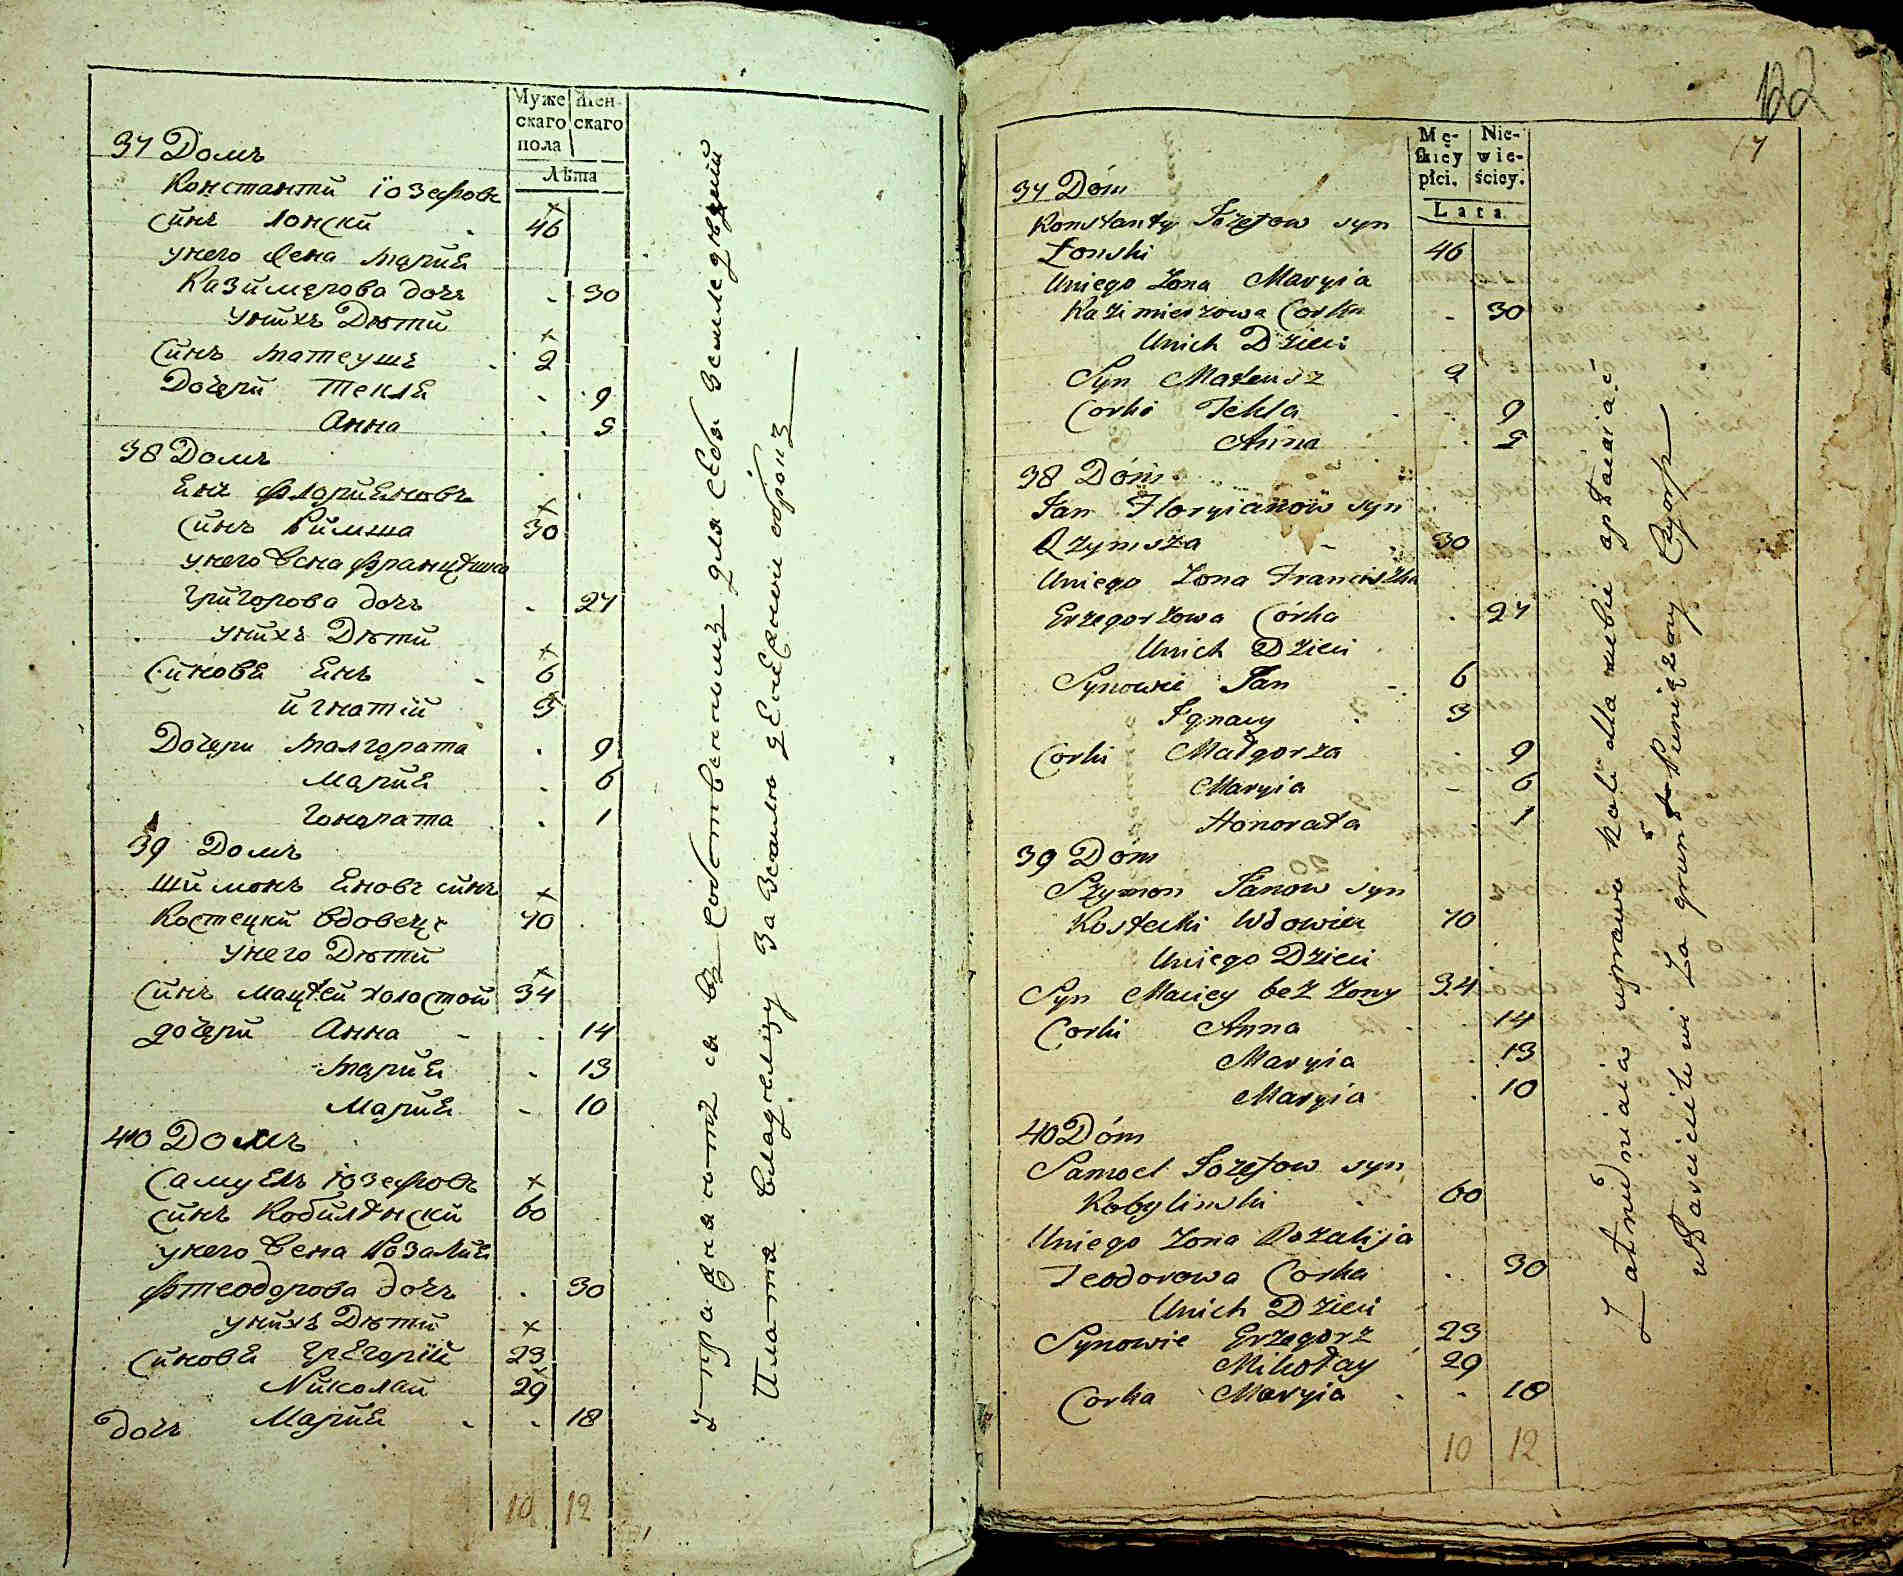 Муже Жен-
скаго скаго
пола
Лѣта
37 Домъ
Константи Їозефовъ
Синъ Лонски 46
унего Жена Мария
Казимерова дочь - 30
унихъ Дѣти
Синъ Матеушъ 2
Дочери Текля - 9
Анна - 5
38 Домъ
Янъ Флорияновъ
Синъ Римша 30
унего Жена Францѣшка
Григорова дочь - 27
унихъ Дѣти
Синовя Янъ - 6
Игнатій 3
Дочери Малгората - 9
Мария - 6
Гонората - 1
39 Домъ
Шимонъ Яновъ синъ
Костецки вдовецъ 70
унего Дѣти
Синъ Мацѣй холостой 34
дочери Анна - 14
Мария - 13
Мария - 10
40 Домъ
Самуель Їозефовъ
синъ Кобилѣнски 60
унего Жена Розалия
Фтеодорова дочь - 30
унихъ Дѣти
Синовя Грегорій 23
Николай 29
дочь Мария - 18
10 12
для себя земледѣлий
Платя владѣльцу за землю
122
17
Mę- Nie-
skiey wie-
płci. ściey.
Lata
37 Dóm
Konstanty Jozefow syn
Łonski 46
Uniego Zona Maryia
Kazimierzowa Corka - 30
Unich Dzieci
Syn Mateusz 2
Corki Tekla - 9
Anna - 5
38 Dóm
Jan Floryianow syn
Rzymsza - 30
Uniego Zona Franciszka
Grzegorzowa Córka - 27
Unich Dzieci
Synowie Jan - 6
Ignacy 3
Corki Małgorza - 9
Maryia - 6
Honorata - 1
39 Dóm
Szymon Janow syn
Kostecki Wdowiec 70
Uniego Dzieci
Syn Maciey bez zony 34
Corki Anna - 14
Maryia - 13
Maryia - 10
40 Dóm
Samoel Jozefow syn
Kobylinski 60
Uniego Zona Rozalija
Teodorowa Corka - 30
Unich Dzieci
Synowie Grzegorz 23
Mikołay 29
Corka Maryia - 18
10 12
Zatrudniaia uprawa Roli dla siebie opłaiaiąc
właścicielowi za grunt Pieniężny Czynsz